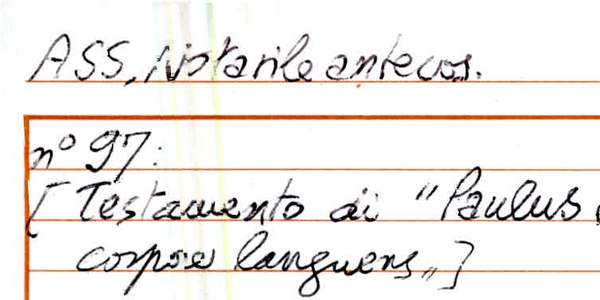 ASS, Notarile antecos.
n° 97:
[Testamento di "Paulus,
corpore languens„]